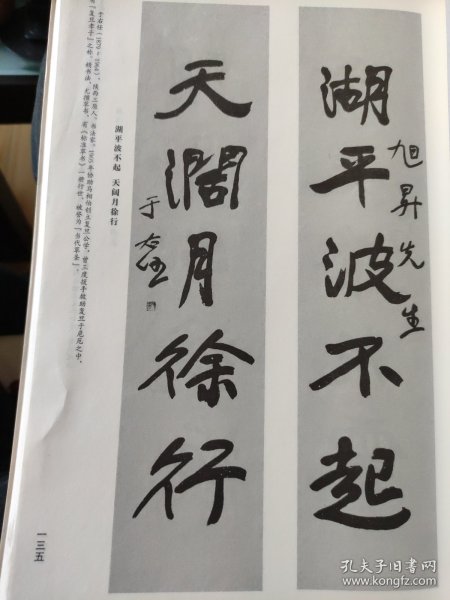 湖平波不起
旭昇先生
天濶月徐行
于右任
湖平波不起 天阔月徐行
于右任(1879-1964),陕西三原人,书法家。1905年协助马相伯创立复旦公学,曾三度援手救助复旦于危厄之中,
有“复旦孝子”之称。精书法,尤擅草书,有《标准草书》一册行世,被誉为“当代草圣”。
一三五
孔夫子旧书网
www.kongfz.com